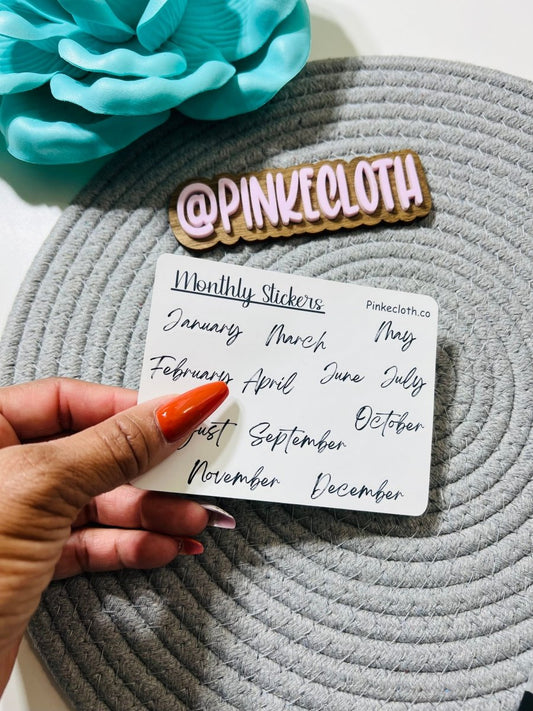 @PINKECLOTH
Monthly Stickers
Pinkecloth.co
January March May
February April June July
October
September
November December